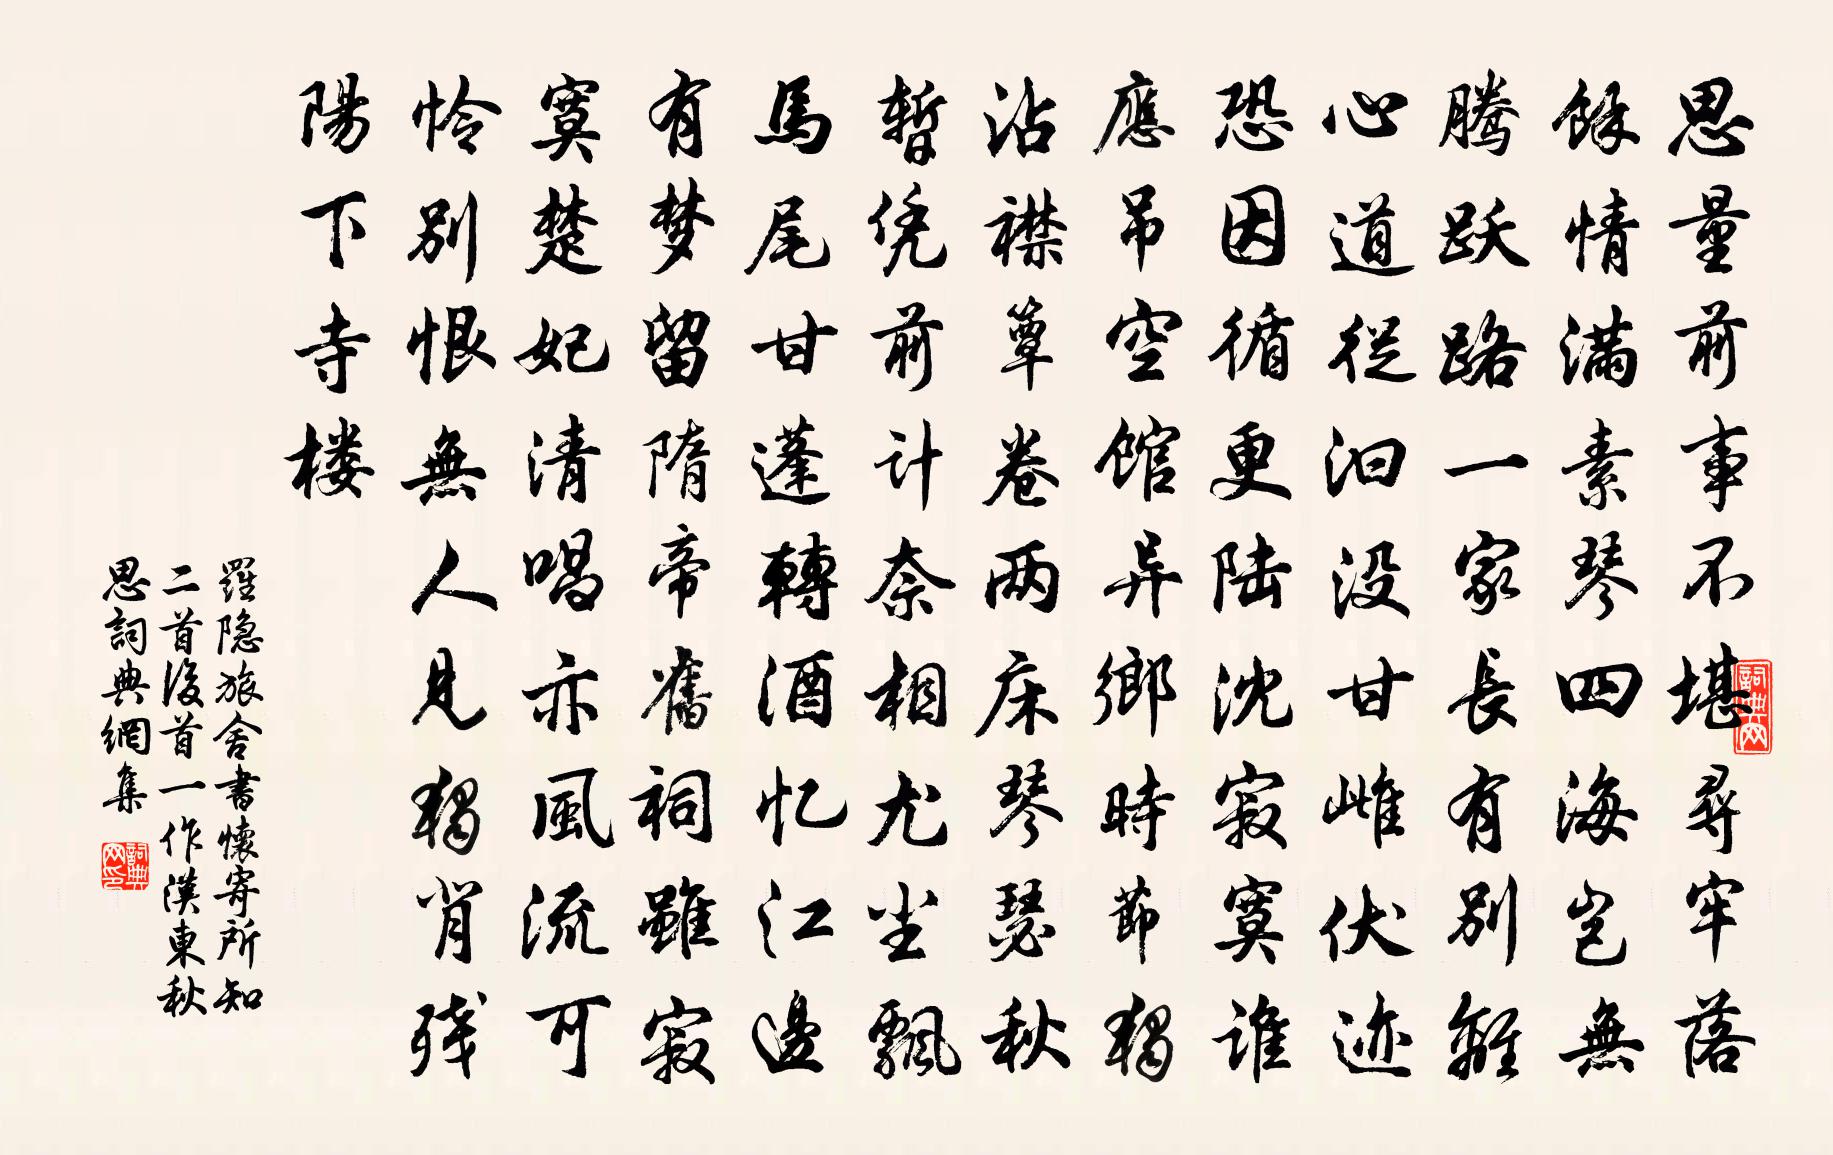 思量前事不堪尋牢落
餘情满素琴四海岂無
腾跃路一家長有别離
心道從汩没甘雌伏迹
恐因循更陆沈寂寞谁
應吊空馆异鄉時節獨
沾襟簟卷两床琴瑟秋
暂凭前计奈相尤尘飄
馬尾甘蓬轉酒忆江邊
有梦留隋帝舊祠雖寂
寞楚妃清唱亦風流可
怜别恨無人見獨肖残
陽下寺楼
羅隐旅舍書懷寄所知
二首後首一作漢東秋
思詞典網集
詞典网
詞典网